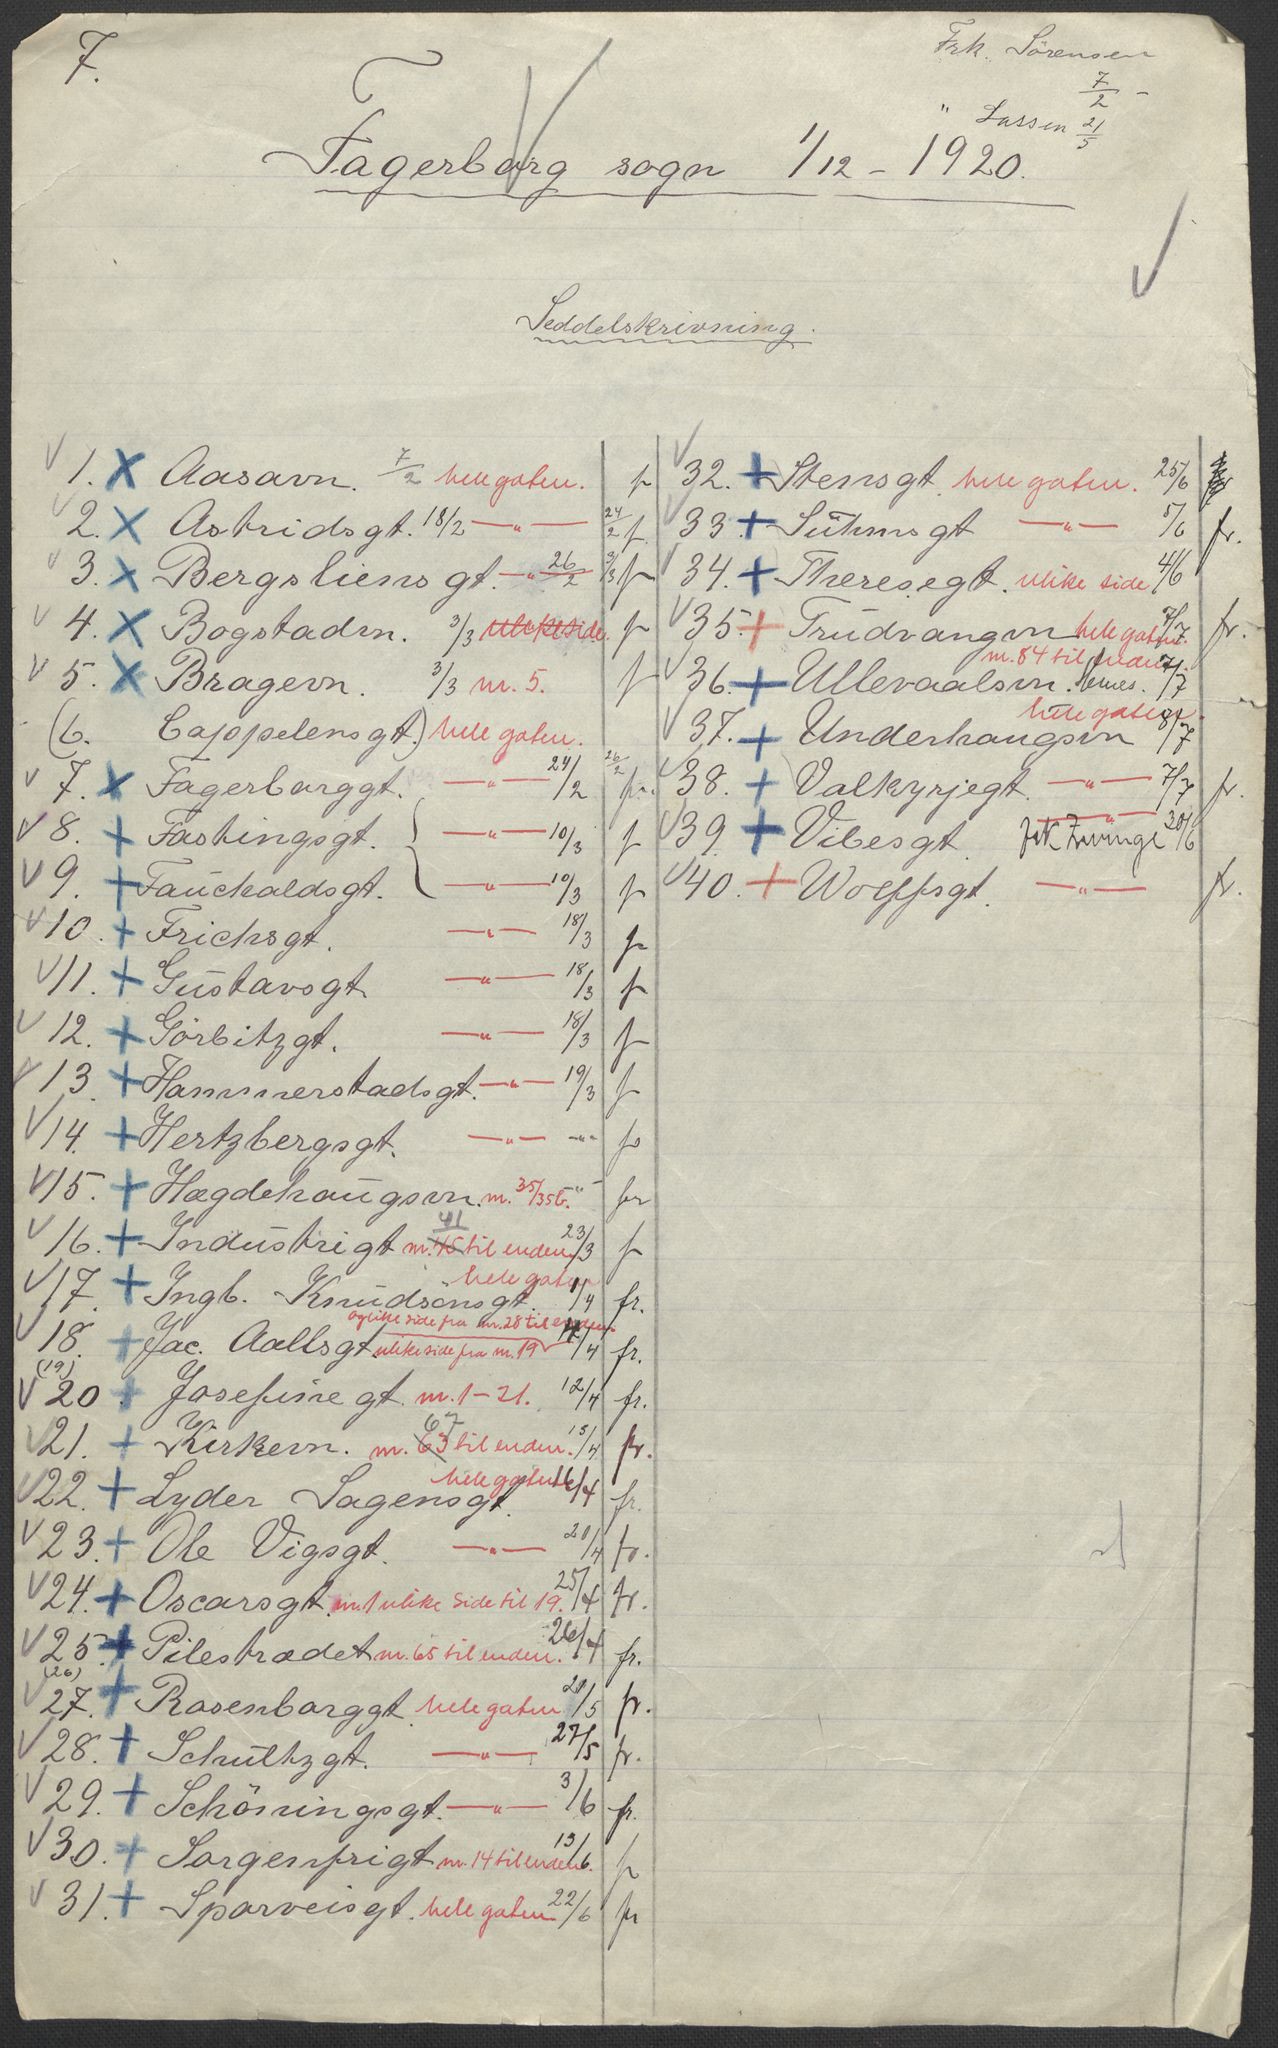 7.
Frk. Sörensen
7/2 -
" Lassen 21/5
Fagerborg sogn 1/12 - 1920.
Seddelskrivning.
1. Aasavn. 7/2 hele gaten.
2. Astridsgt. 18/2 —"— 24/2
3. Bergsliens gt. —"— 26/2 3/3
4. Bogstadvn. 3/3 ulike side.
5. Bragevn. 3/3 nr. 5.
(6. Cappelensgt.) hele gaten.
7. Fagerborggt. —"— 24/2 26/2 fr.
8. Fastingsgt. —"— 10/3
9. Fauchaldsgt. —"— 10/3
10. Frichsgt. —"— 18/3
11. Gustavsgt. —"— 18/3
12. Görbitzgt. —"— 18/3
13. Hammerstadsgt. —"— 19/3
14. Hertzbergsgt. —"— -"-
15. Hægdehaugsvn. nr. 35/35b. "
16. Industrigt nr. 45 41 til enden 23/3
17. Ingb. Knudsönsgt. hele gaten 1/4 fr.
18. Jac. Aallsgt. ulike side fra nr. 19 og like side fra nr. 28 til enden 4/4 fr.
(19)
20 Josefine gt. nr. 1-21. 12/4 fr.
21. Kirkevn. nr. 63 67 til enden. 15/4 fr.
22. Lyder Sagensgt. hele gaten 16/4 fr.
23. Ole Vigsgt. —"— 20/4 fr.
24. Oscarsgt. nr. 1 ulike side til 19. 25/4 fr.
25. Pilestrædet nr. 65 til enden. 26/4 fr.
(26)
27. Rosenborggt. hele gaten 20/5 fr.
28. Schultzgt. —"— 27/5 fr.
29. Schöningsgt. —"— 3/6 fr.
30. Sorgenfrigt nr. 14 til enden 13/6.
31. Sparveisgt. hele gaten 22/6 fr
32. Stensgt. hele gaten. 25/6
33. Suhmsgt —"— 5/6 fr.
34. Theresegt. ulike side 4/6
35. Trudvangvn hele gaten. 7/7 fr.
36. Ullevaalsvn. nr. 84 til enden. 7/7
37. Underhaugsvn hele gaten. 8/7
38. Valkyrjegt. —"— 7/7 fr.
39. Vibesgt. —"— 30/6
40. Wolffsgt. —"— fr.